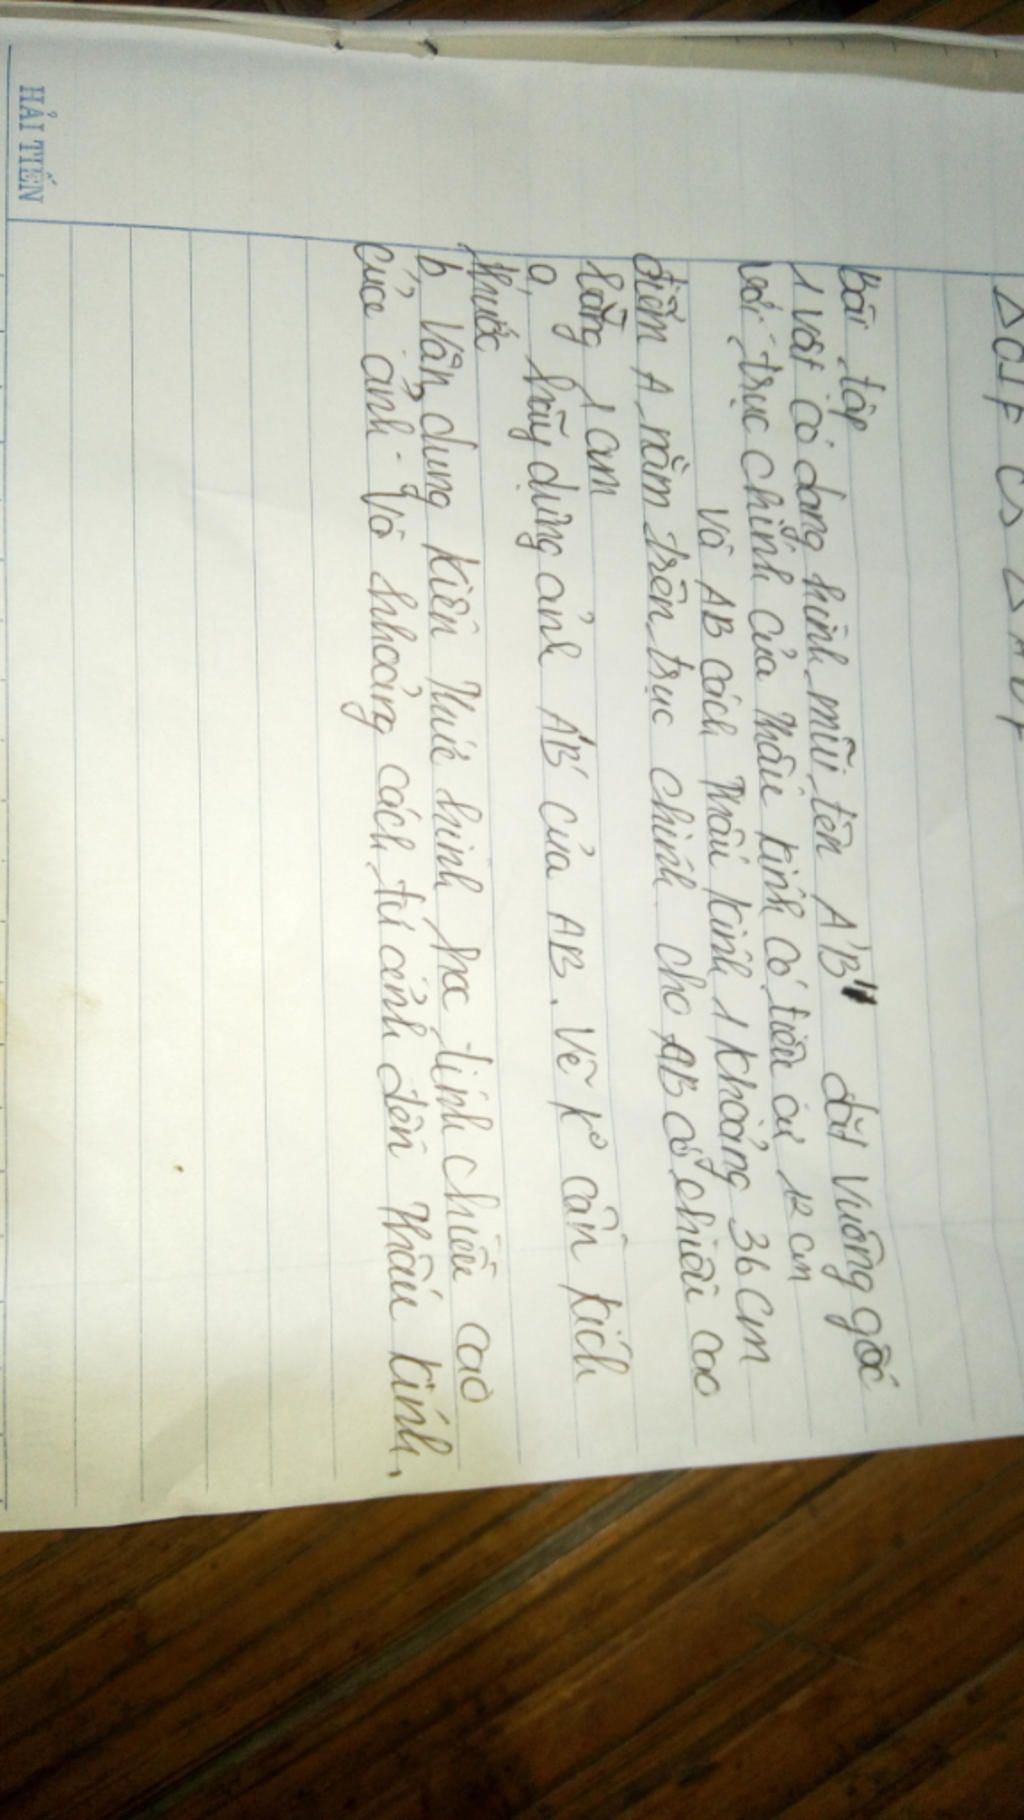 ΔOIF ∽ ΔABF
Bài tập
1 vật có dạng hình mũi tên A'B' đặt vuông góc
với trục chính của thấu kính có tiêu cự 12 cm
và AB cách thấu kính 1 khoảng 36 cm
điểm A nằm trên trục chính cho AB có chiều cao
bằng 1 cm
a, hãy dựng ảnh A'B' của AB. Vẽ k° cần kích
thước
b, Vận dụng kiến thức hình học tính chiều cao
của ảnh. Và khoảng cách từ ảnh đến thấu kính.
HẢI TIẾN